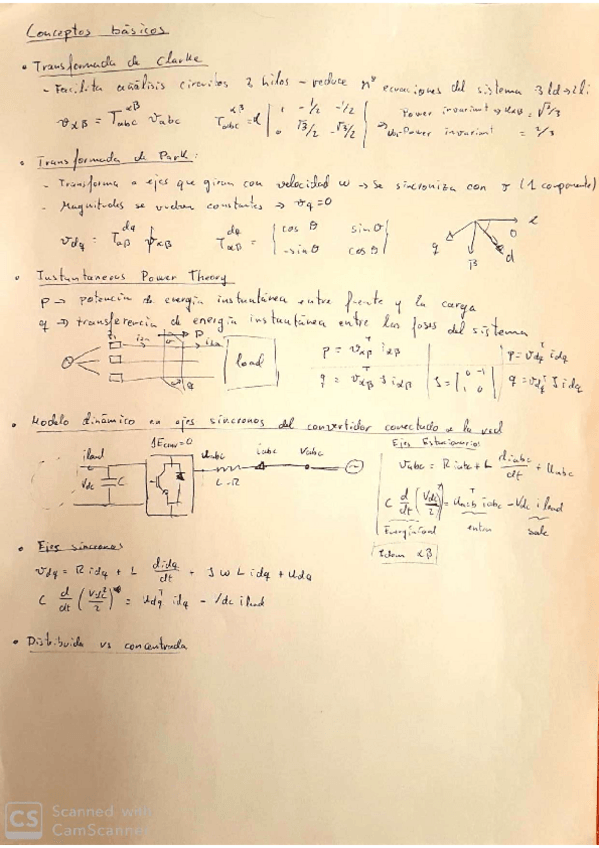 Conceptos básicos
• Transformada de Clarke
- Facilita análisis circuitos 3 hilos - reduce nº ecuaciones del sistema
vαβ = Tabc^αβ vabc Tabc^αβ = α | 1 -1/2 -1/2 | Power invariant → = √2/3
| 0 √3/2 -√3/2 | Power invariant = 2/3
• Transformada de Park:
- Transforma a ejes que giran con velocidad ω → se sincroniza con v (1 componente)
- Magnitudes se vuelven constantes → vq = 0
vdq = Tαβ^dq vαβ Tαβ^dq = | cos θ sin θ |
| -sin θ cos θ |
α
θ
q
β
d
• Instantaneous Power Theory
P → potencia de energía instantánea entre fuente y la carga
q → transferencia de energía instantánea entre las fases del sistema
P
q
load
p = vαβ^T iαβ p = vdq^T idq
q = vαβ^T J iαβ J = | 0 -1 | q = vdq^T J idq
| 1 0 |
• Modelo dinámico en ejes síncronos del convertidor conectado a la red
iload ΔEconv = 0 uabc iabc vabc
Vdc C L-R
Ejes Estacionarios
vabc = R iabc + L d iabc/dt + uabc
C d/dt (Vdc²/2) = uabc^T iabc - Vdc iload
entra sale
Idem αβ
• Ejes síncronos
vdq = R idq + L d idq/dt + J ω L idq + udq
C d/dt (Vdc²/2) = udq^T idq - Vdc iload
• Distribuida vs concentrada
CS Scanned with
CamScanner